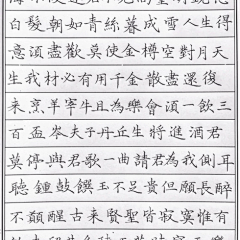 白髮朝如青絲暮成雪人生得
意須盡歡莫使金樽空對月天
生我材必有用千金散盡還復
来烹羊宰牛且為樂會須一飲三
百盃岑夫子丹丘生將進酒君
莫停與君歌一曲請君為我側耳
聽鍾鼓饌玉不足貴但願長醉
不願醒古来賢聖皆寂寞惟有